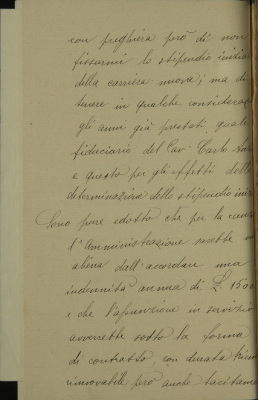 con preghiera però di non
fissarmi lo stipendio inizia
della carriera nuova; ma di
tenere in qualche considerazi
gli anni già prestati, quale
fiduciario del Cav. Carlo
e questo per gli effetti della
determinazione dello stipendio iniz
Sono pure edotto che per la
l'Amministrazione
aliena dall'accordare una
indennità annua di £ 1500
e che l'assunzione in servizio
avverrebbe sotto la forma
di contratto, con durata
rinnovabile però anche tacitame